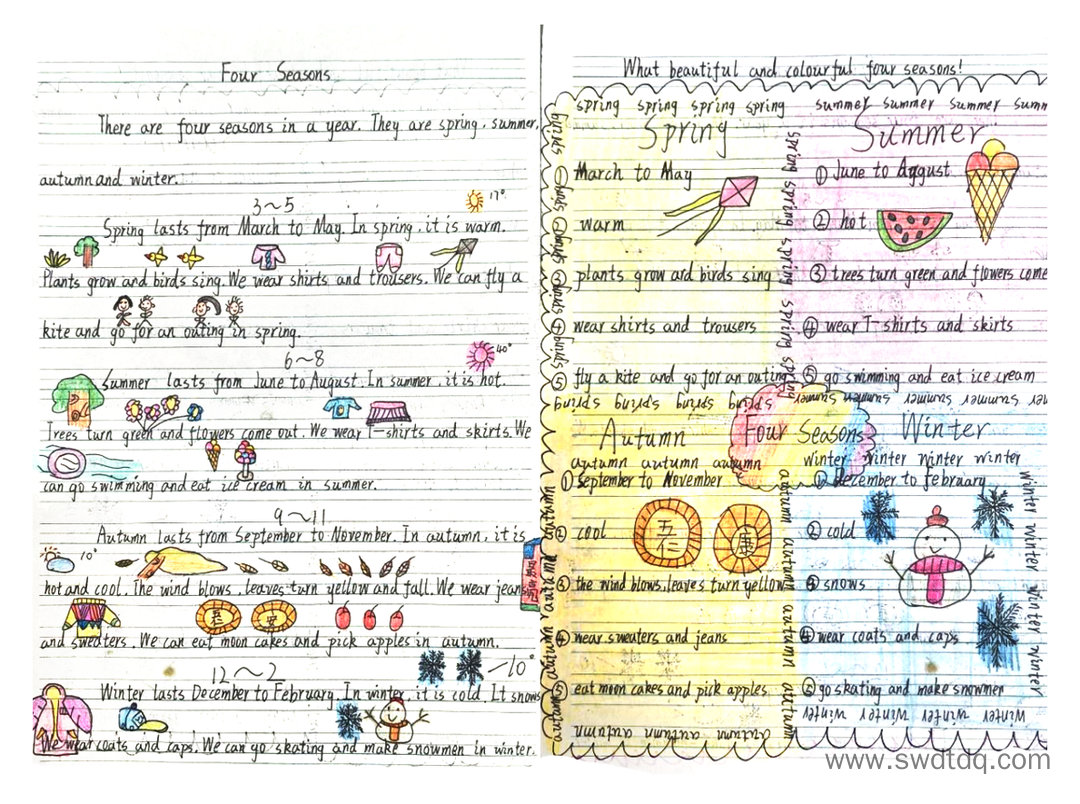 Four Seasons
There are four seasons in a year. They are spring, summer,
autumn and winter.
3～5
17°
Spring lasts from March to May. In spring, it is warm.
Plants grow and birds sing. We wear shirts and trousers. We can fly a
kite and go for an outing in spring.
6～8
40°
Summer lasts from June to August. In summer, it is hot.
Trees turn green and flowers come out. We wear T-shirts and skirts. We
can go swimming and eat ice cream in summer.
9～11
Autumn lasts from September to November. In autumn, it is
10°
hot and cool. The wind blows, leaves turn yellow and fall. We wear jeans
五 安
and sweaters. We can eat moon cakes and pick apples in autumn.
12～2
-10°
Winter lasts December to February. In winter, it is cold. It snows
We wear coats and caps. We can go skating and make snowmen in winter.
What beautiful and colourful four seasons!
spring spring spring spring
Spring
① March to May
② warm
③ plants grow and birds sing
④ wear shirts and trousers
⑤ fly a kite and go for an outing
spring spring spring spring
spring spring spring spring spring spring
summer summer summer summ
Summer
① June to August
② hot
③ trees turn green and flowers come
④ wear T-shirts and skirts
⑤ go swimming and eat ice cream
summer summer summer summer
Four Seasons
Autumn
autumn autumn autumn
① September to November
② cool
五仁
康
③ the wind blows, leaves turn yellow
④ wear sweaters and jeans
⑤ eat moon cakes and pick apples
autumn autumn autumn
autumn autumn autumn autumn
Winter
winter winter winter winter
① December to February
② cold
③ snows
④ wear coats and caps
⑤ go skating and make snowmen
winter winter winter winter
winter winter winter winter
www.swdtdq.com